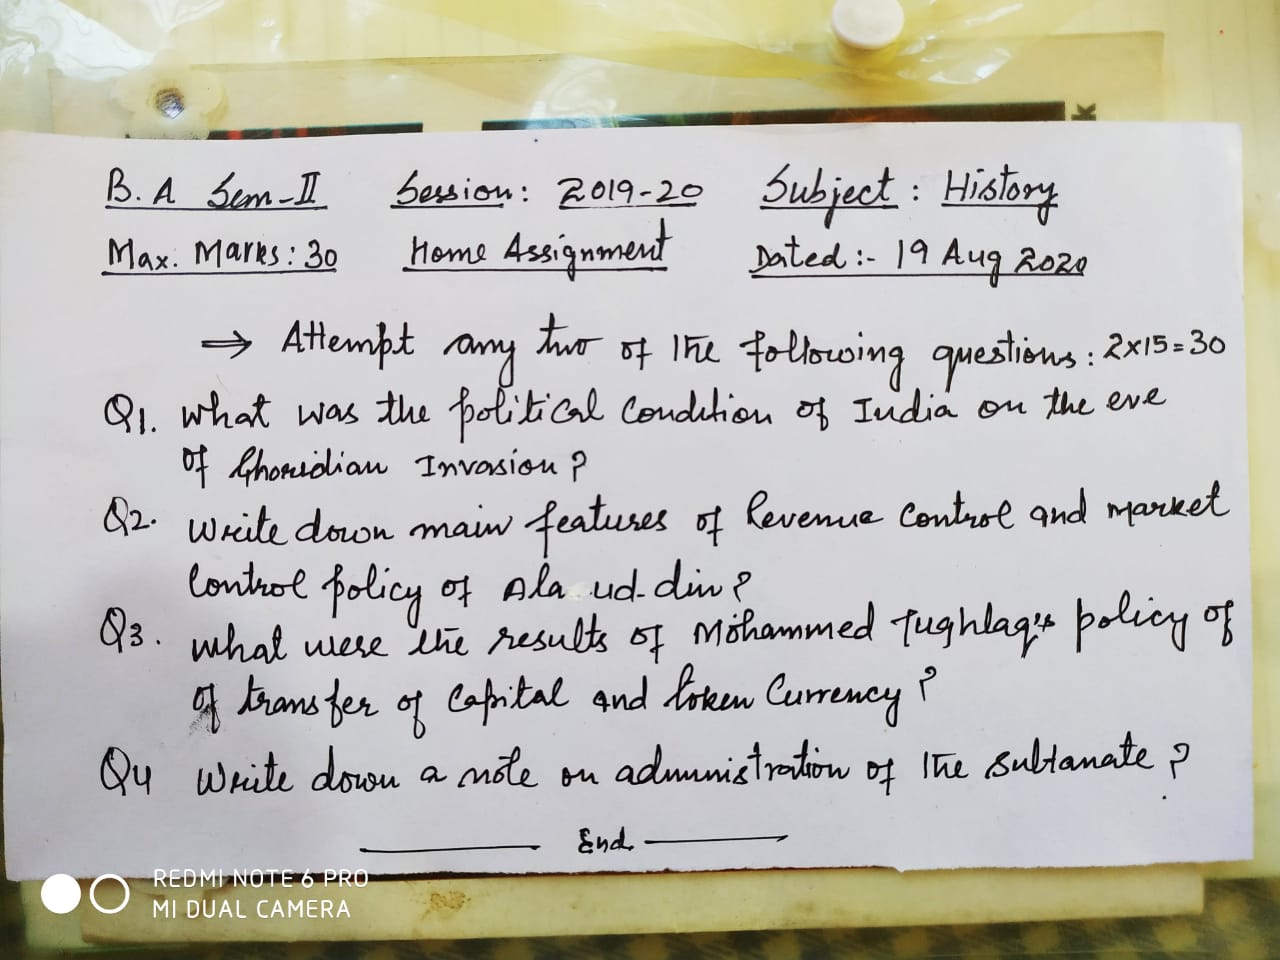 B.A Sem-II Session: 2019-20 Subject: History
Max. Marks: 30 Home Assignment Dated:- 19 Aug 2020
⇒ Attempt any two of the following questions: 2x15=30
Q1. What was the political Condition of India on the eve
of Ghoridian Invasion?
Q2. Write down main features of Revenue Control and Market
Control policy of Ala ud-din?
Q3. What were the results of Mohammed Tughlaq's policy of
of transfer of Capital and token Currency?
Q4 Write down a note on administration of the Sultanate?
End.
REDMI NOTE 6 PRO
MI DUAL CAMERA